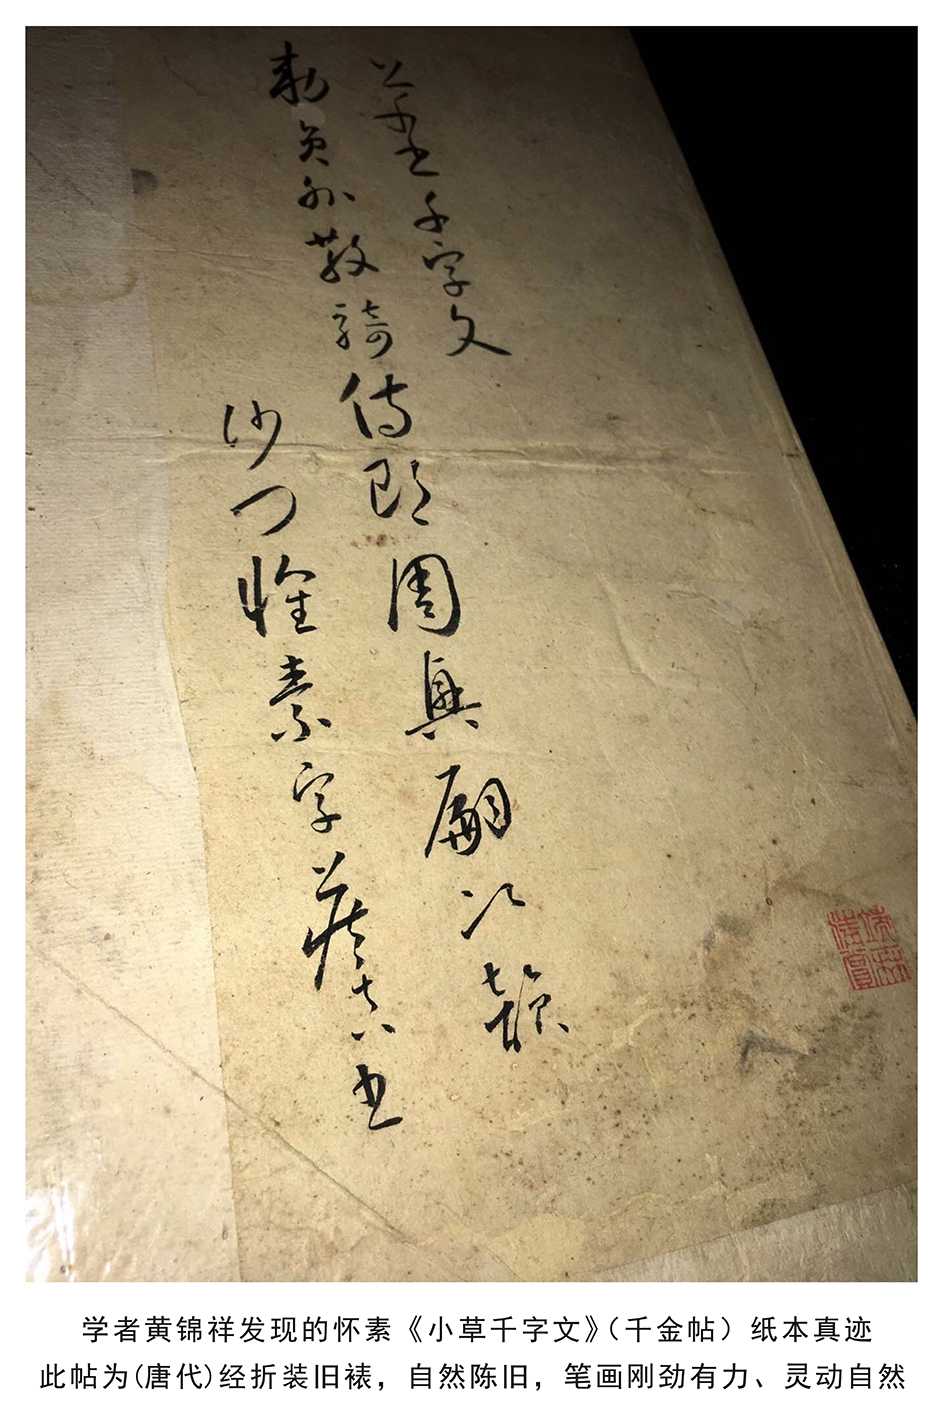 小草书千字文
敕员外散骑侍郎周兴嗣次韵
沙门怀素字藏真书
学者黄锦祥发现的怀素《小草千字文》(千金帖）纸本真迹
此帖为(唐代)经折装旧裱，自然陈旧，笔画刚劲有力、灵动自然